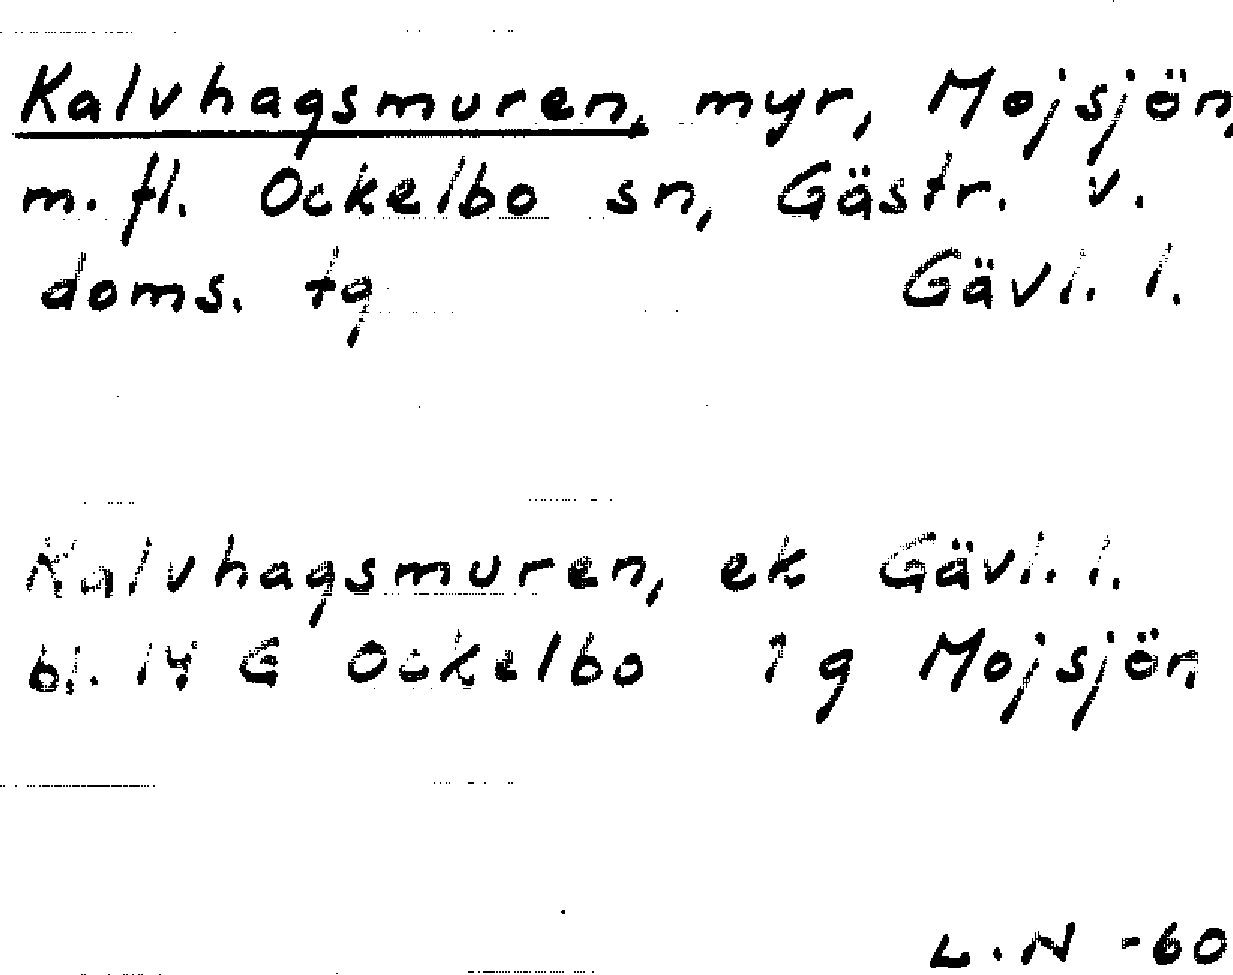 Kalvhagsmuren, myr, Mojsjön,
m. fl. Ockelbo sn, Gästr. v.
doms. tg Gävl. l.
Kalvhagsmuren, ek Gävl. l.
bl. 14 G Ockelbo 1 g Mojsjön
L.N -60